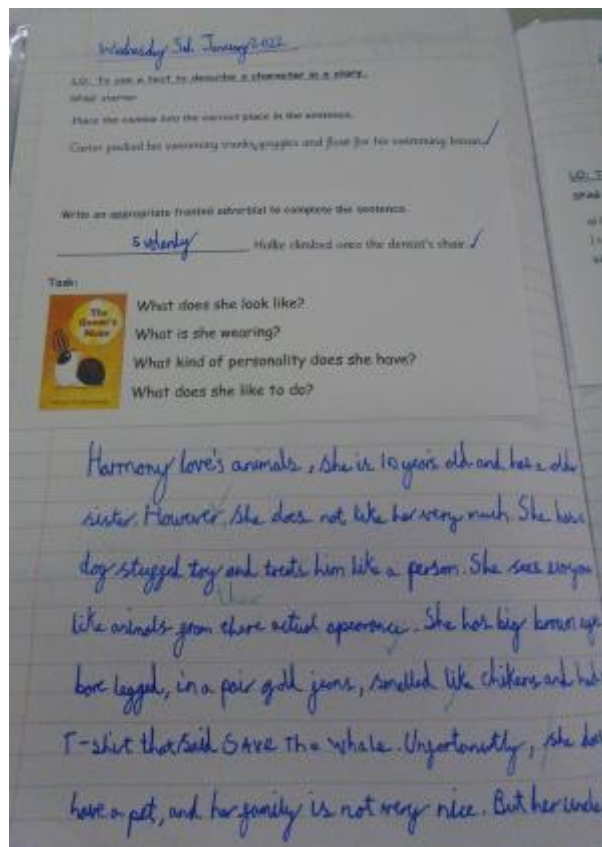 Wednesday 5th January 2022
LO: To use a text to describe a character in a story.
SPAG starter
Place the comma into the correct place in the sentence.
Carter packed his swimming trunks, goggles and float for his swimming lesson.
Write an appropriate fronted adverbial to complete the sentence.
Hollie climbed onto the dentist's chair.
Task:
The Queen's Nose
What does she look like?
What is she wearing?
What kind of personality does she have?
What does she like to do?
LO: T
SPAG
Harmony love's animals, she is 10 years old and has a older
sister. However, she does not like her very much. She has a
dog stuffed toy and treats him like a person. She sees
like animals from there actual apearance. She has big brown eye
bare legged, in a pair of old jeans, smelled like chikens and had
T-shirt that said SAVE The whale. Unfortantly, she
have a pet, and her family is not very nice. But her uncle